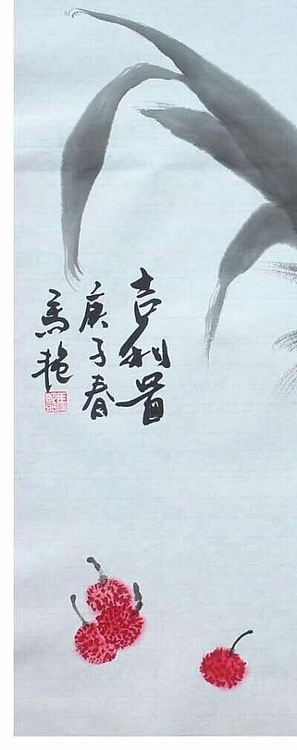 吉利图
庚子春
马艳